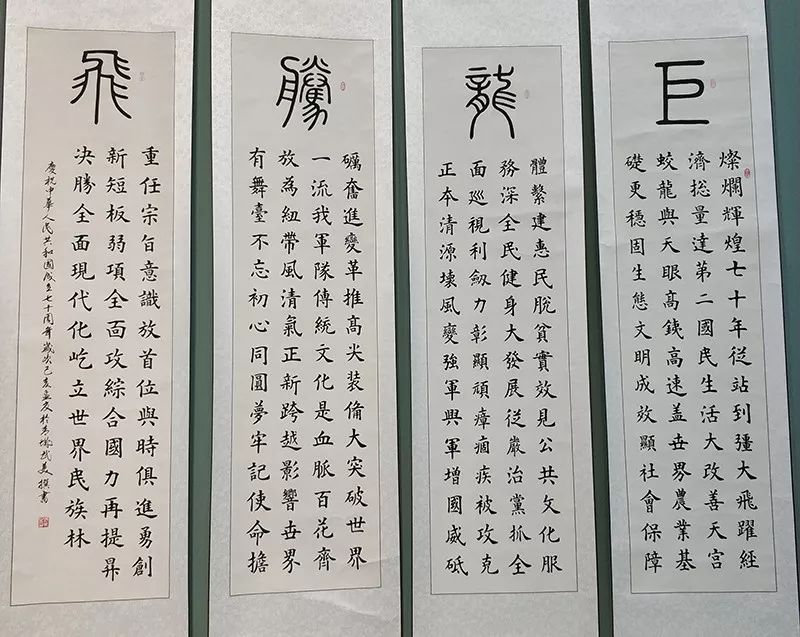 巨
燦爛輝煌七十年從站到彊大飛躍經
濟総量達第二國民生活大改善天宮
蛟龍與天眼高銕高速蓋世界農業基
礎更穩固生態文明成效顯社會保障
龍
體繫建惠民脫貧實效見公共文化服
務深全民健身大發展從嚴治黨抓全
面巡視利劔力彰顯頑瘴痼疾被攻克
正本清源壊風變強軍興軍增國威砥
騰
礪奮進變革推高尖裝俻大突破世界
一流我軍隊傳統文化是血脈百花齊
放為紐帶風清氣正新跨越影響世界
有舞臺不忘初心同圓夢牢記使命擔
飛
重任宗旨意識放首位與時俱進勇創
新短板弱項全面攻綜合國力再提昇
決勝全面現代化屹立世界民族林
慶祝中華人民共和國成立七十周年歲次己亥孟夏於撰書